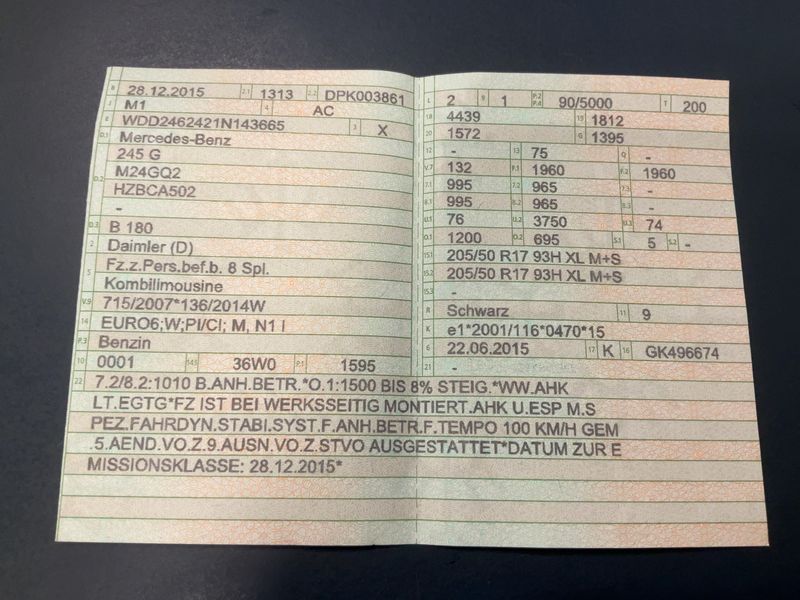 B 28.12.2015 2.1 1313 2.2 DPK003861
J M1 4 AC
E WDD2462421N143665 3 X
D.1 Mercedes-Benz
245 G
M24GQ2
D.2 HZBCA502
-
D.3 B 180
2 Daimler (D)
5 Fz.z.Pers.bef.b. 8 Spl.
Kombilimousine
V.9 715/2007*136/2014W
14 EURO6;W;PI/CI; M, N1 I
P.3 Benzin
10 0001 14.1 36W0 P.1 1595
L 2 9 1 P.2 P.4 90/5000 T 200
18 4439 19 1812
20 1572 G 1395
12 - 13 75 Q -
V.7 132 F.1 1960 F.2 1960
7.1 995 7.2 965 7.3 -
8.1 995 8.2 965 8.3 -
U.1 76 U.2 3750 U.3 74
O.1 1200 O.2 695 S.1 5 S.2 -
15.1 205/50 R17 93H XL M+S
15.2 205/50 R17 93H XL M+S
15.3 -
R Schwarz 11 9
K e1*2001/116*0470*15
6 22.06.2015 17 K 16 GK496674
21 -
22 7.2/8.2:1010 B.ANH.BETR.*O.1:1500 BIS 8% STEIG.*WW.AHK
LT.EGTG*FZ IST BEI WERKSSEITIG MONTIERT.AHK U.ESP M.S
PEZ.FAHRDYN.STABI.SYST.F.ANH.BETR.F.TEMPO 100 KM/H GEM
.5.AEND.VO.Z.9.AUSN.VO.Z.STVO AUSGESTATTET*DATUM ZUR E
MISSIONSKLASSE: 28.12.2015*